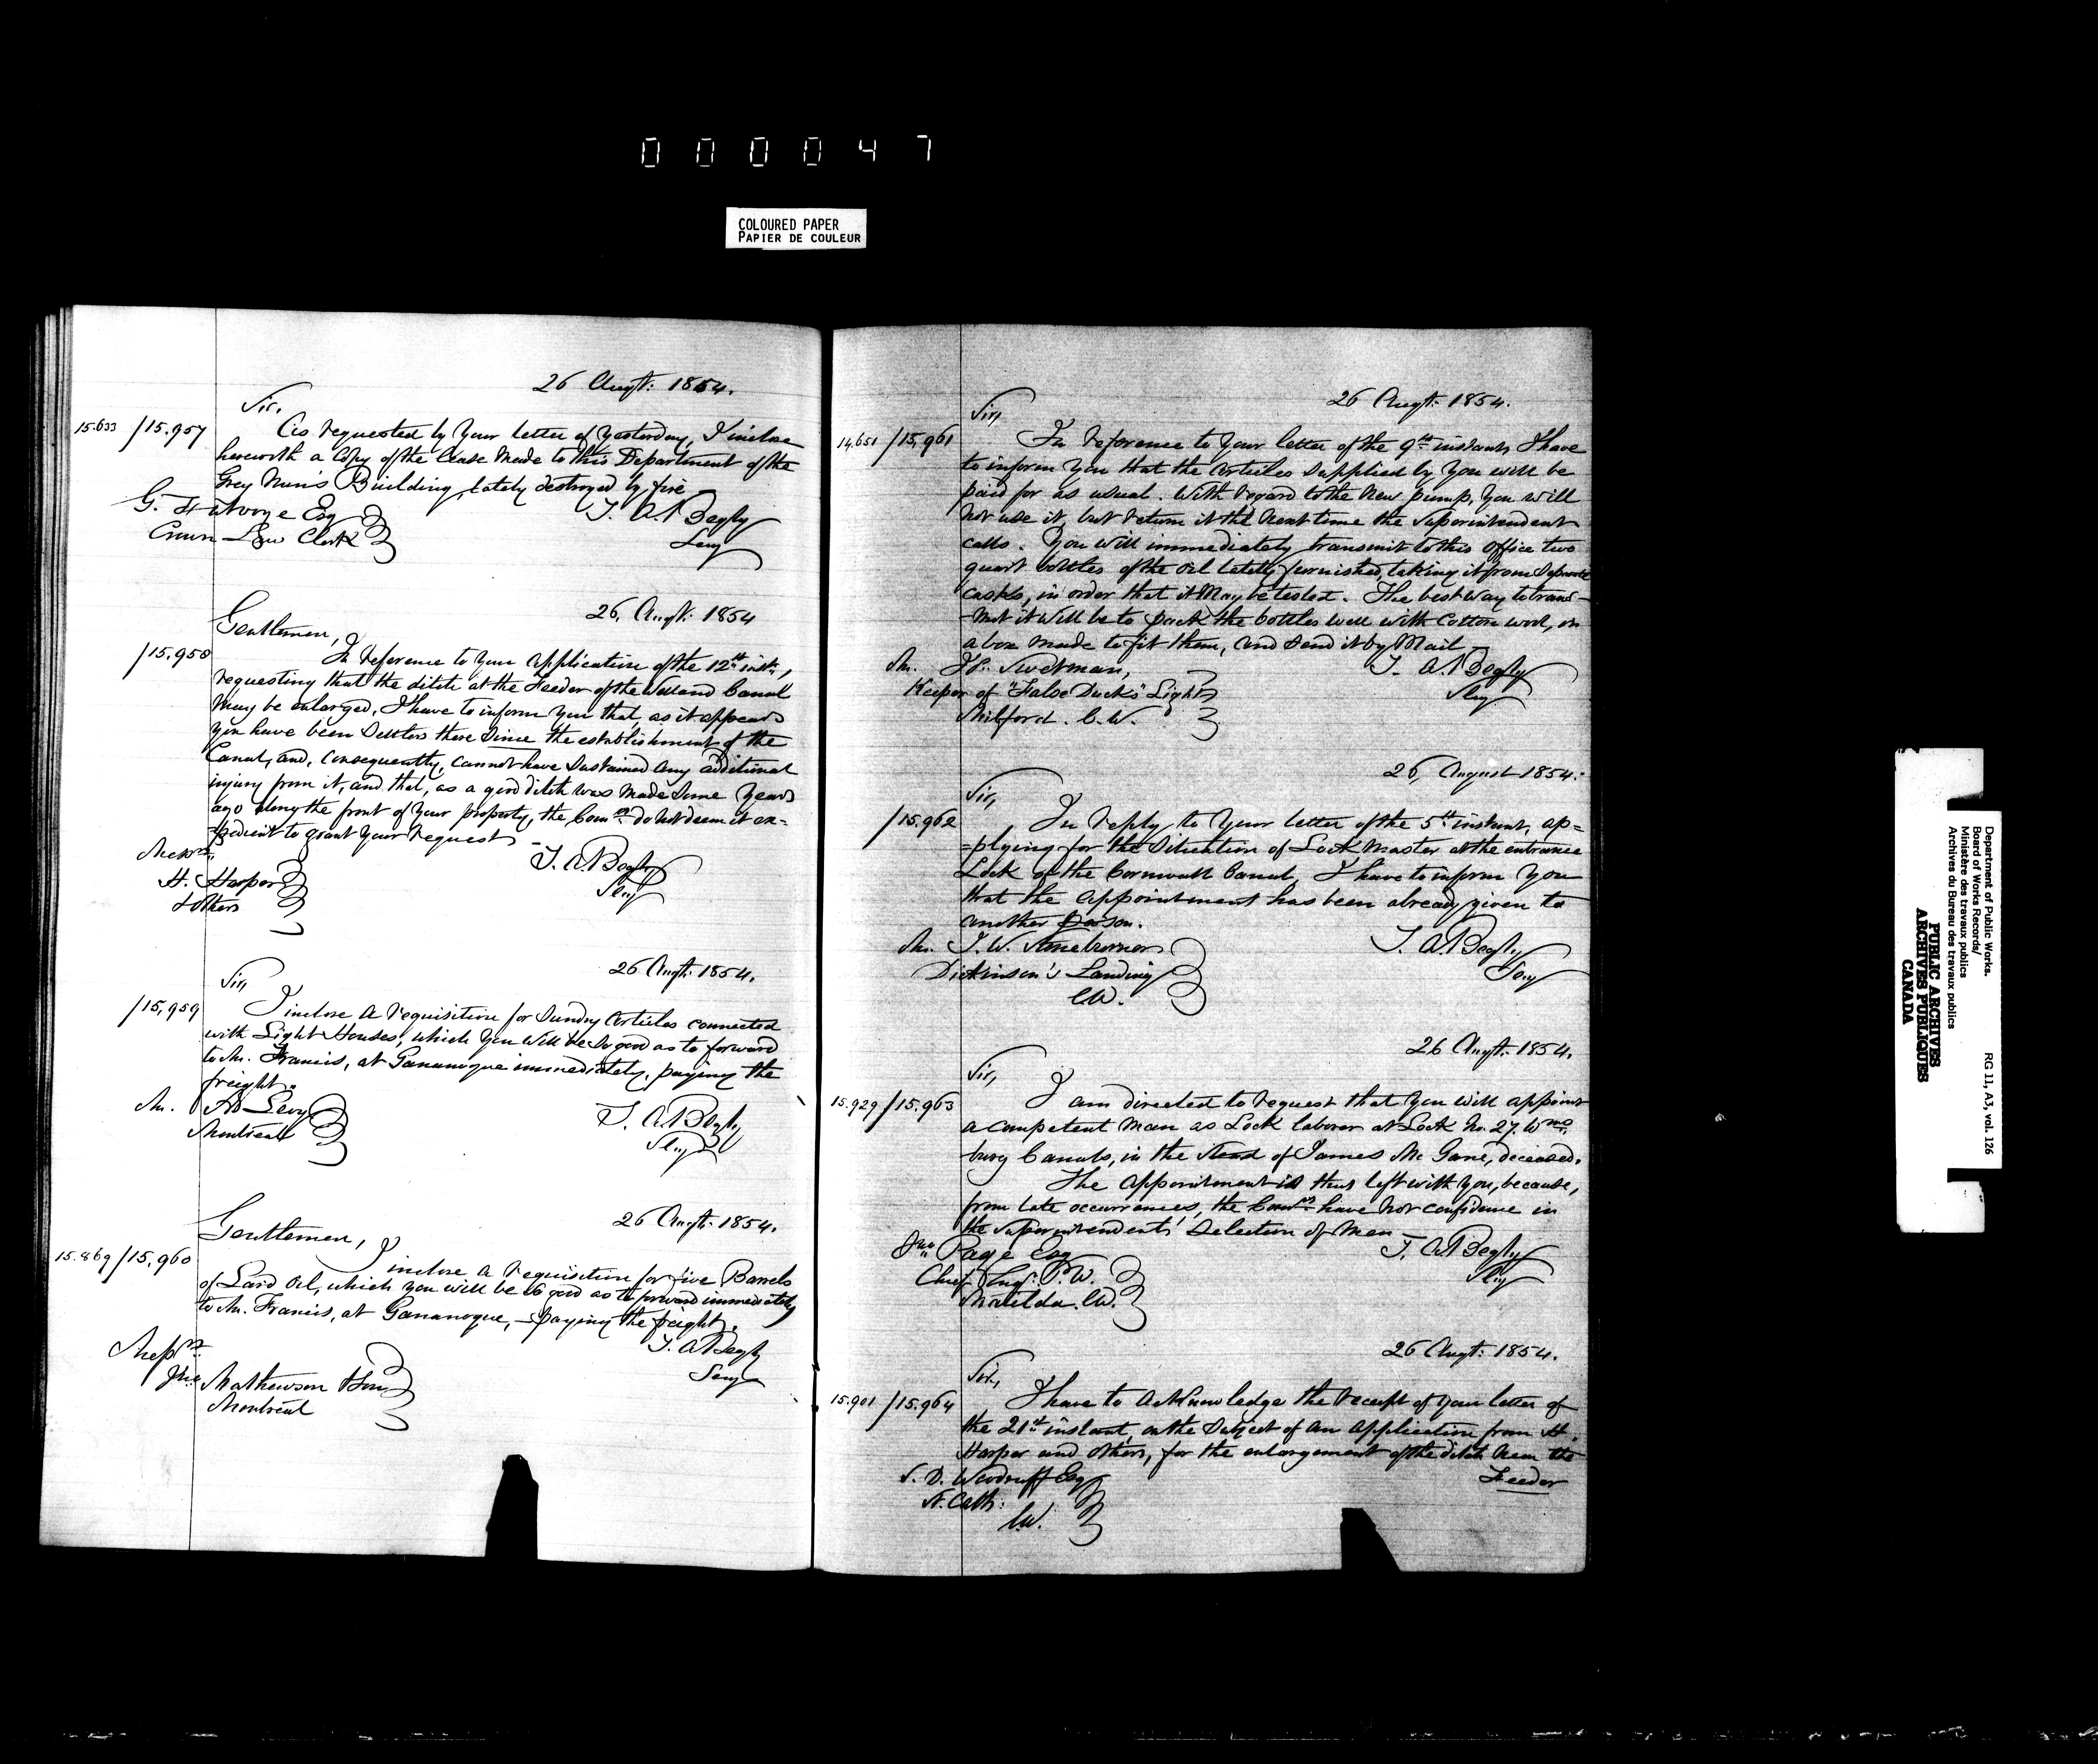 000047
COLOURED PAPER
PAPIER DE COULEUR
26 Augt. 1854.
Sir,
15.633 /15.957 As requested by your letter of yesterday, I inclose
herewith a copy of the lease made to this Department of the
Grey Nun's Building, lately destroyed by fire
G. Futvoye Esq T. A. Begly
Crown Law Clerk Secy
26, Augt. 1854
Gentlemen,
/15.958 In reference to your application of the 12th inst.,
requesting that the ditch at the Feeder of the Welland Canal
may be enlarged, I have to inform you that, as it appears
you have been Settlers there since the establishment of the
Canal, and, consequently, cannot have sustained any additional
injury from it, and that, as a good ditch was made some years
ago along the front of your property, the Comrs do not deem it ex=
=pedient to grant your request
Messrs T. A. Begly
H. Harper Secy
& Others
26 Augt. 1854.
Sir,
/15,959 I inclose a requisition for Sundry Articles connected
with Light Houses, which you will be so good as to forward
to Mr. Francis, at Gananoque immediately, paying the
freight.
Mr. Levy T. A. Begly
Montreal Secy
26 Augt. 1854.
Gentlemen,
15.869 /15,960 I inclose a requisition for five Barrels
of Lard Oil, which you will be so good as to forward immediately
to Mr. Francis, at Gananoque, – paying the freight.
Messrs T. A. Begly
Jno Mathewson & Son Secy
Montreal
26 Augt. 1854.
Sir,
14,651 /15,961 In reference to your letter of the 9th instant, I have
to inform you that the articles supplied by you will be
paid for as usual. With regard to the new pump, you will
not use it, but return it the next time the Superintendent
calls. You will immediately transmit to this Office two
quart bottles of the oil lately furnished, taking it from separate
casks, in order that it may be tested. The best way to trans–
–mit it will be to pack the bottles well with cotton wool, in
a box made to fit them, and send it by Mail –
Mr. Swetman, T. A. Begly
Keeper of "False Ducks" Light Secy
Milford. C.W.
26, August 1854.
Sir,
/15.962 In reply to your letter of the 5th instant, ap=
=plying for the Situation of Lock Master at the entrance
Lock of the Cornwall Canal, I have to inform you
that the appointment has been already given to
another person.
Mr. T. W. T. A. Begly
Dickinson's Landing Secy
C.W.
26 Augt. 1854.
Sir,
15.929 /15.963 I am directed to request that you will appoint
a competent man as Lock laborer at Lock No. 27. Wms
burg Canals, in the stead of James Mc Gane, deceased.
The appointment is thus left with you, because,
from late occurrences, the Comrs have not confidence in
the Superintendents' selection of men
Jno Page Esq T. A. Begly
Chief Engr. P.W. Secy
Matilda. C.W.
26 Augt. 1854.
Sir,
15.901 /15.964 I have to acknowledge the receipt of your letter of
the 21st instant, on the subject of an application from H.
Harper and others, for the enlargement of the ditch near the
S. D. Woodruff Esq Feeder
St. Cath:
C.W.
Department of Public Works. RG 11, A3, vol. 126
Board of Works Records/
Ministère des travaux publics
Archives du Bureau des travaux publics
PUBLIC ARCHIVES
ARCHIVES PUBLIQUES
CANADA